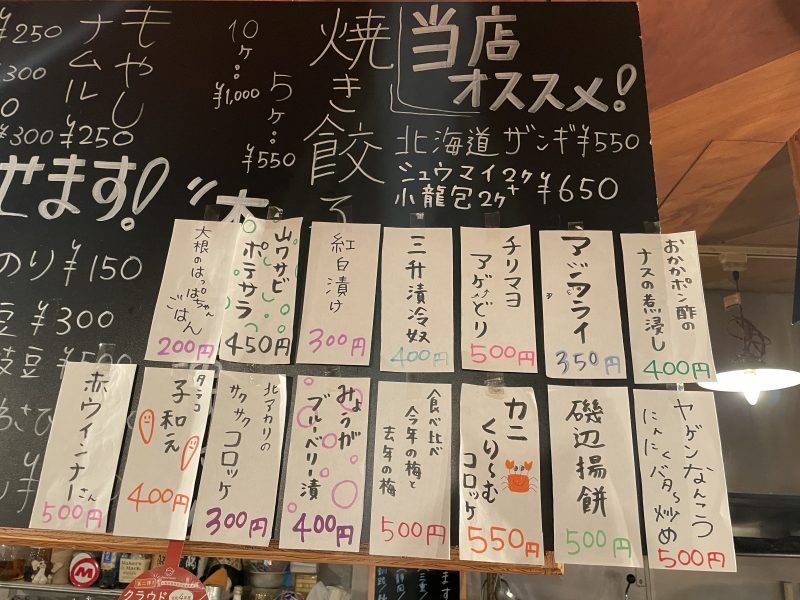 当店
オススメ!
北海道 ザンギ ¥550
シュウマイ2ケ+
小龍包2ケ ¥650
焼き餃
10ケ:¥1,000
5ケ:¥550
もやし
ナムル
¥250
¥300
¥300 ¥250
せます!
のり ¥150
豆 ¥300
枝豆 ¥500
おかかポン酢の
ナスの煮浸し
400円
アジフライ
350円
チリマヨ
アゲどり
500円
三升漬冷奴
400円
紅白漬け
300円
山ワサビ
ポテサラ
450円
大根のはっぱちゃん
ごはん
200円
ヤゲンなんこつ
にんにくバター炒め
500円
磯辺揚餅
500円
カニ
くり〜む
コロッケ
550円
食べ比べ
今年の梅と
去年の梅
500円
みょうが
ブルーベリー漬
400円
北アカリの
サクサク
コロッケ
300円
タラコ
子和え
400円
赤ウインナーさん
500円
Maker's
Mark
M
クラウド